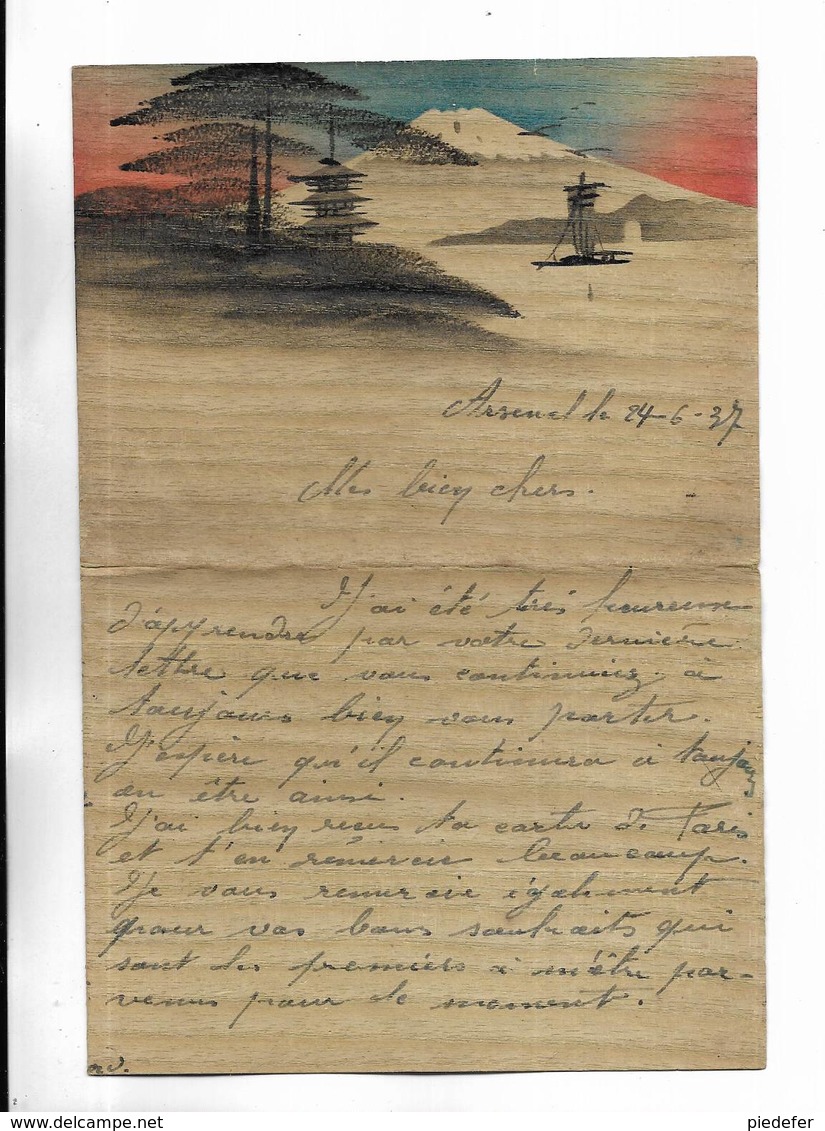 Arsenal le 24-6-37
Mes bien chers.
J'ai été très heureux
d'apprendre par votre dernière
lettre que vous continuiez à
toujours bien vous porter.
J'espère qu'il continuera à toujours
en être ainsi.
J'ai bien reçu ta carte de Paris
et t'en remercie beaucoup.
Je vous remercie également
pour vos bons souhaits qui
sont les premiers à m'être par-
venus pour le moment.
piedefer